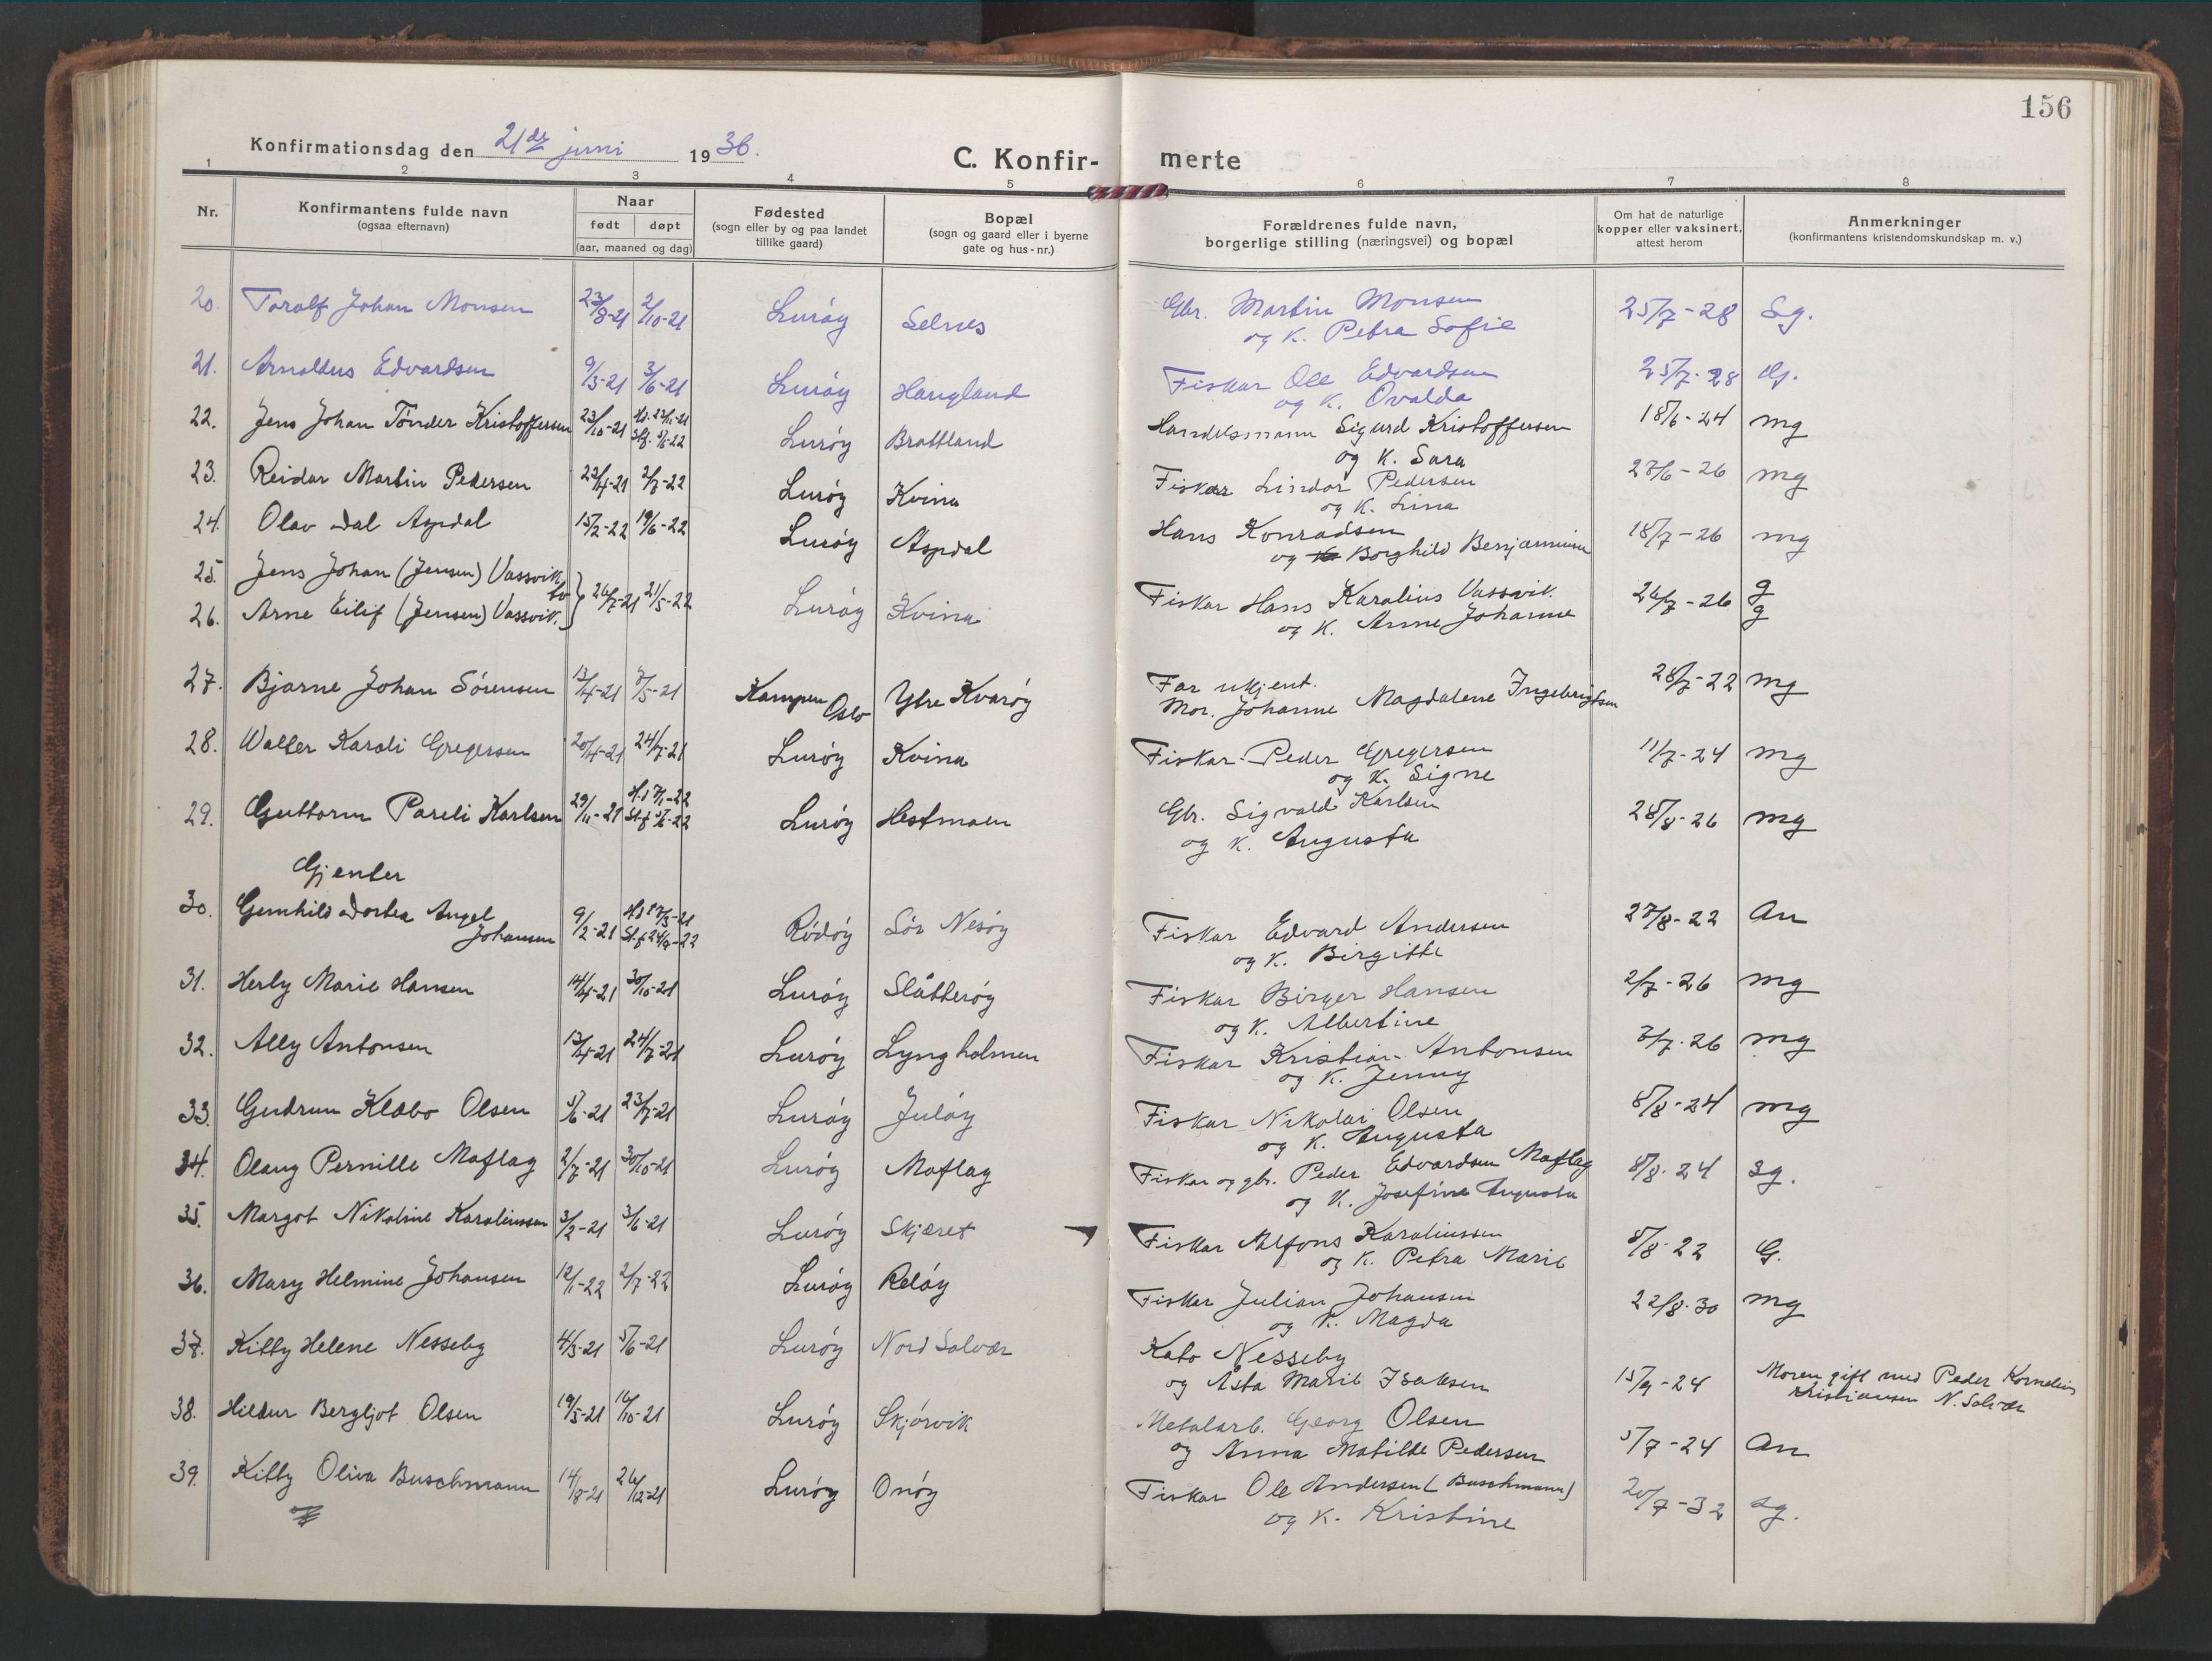 156
Konfirmationsdag den 21de juni 1936.
C. Konfirmerte
1 2 3 4 5 6 7 8
Nr.
Konfirmantens fulde navn
(ogsaa efternavn)
Naar
født døpt
(aar, maaned og dag)
Fødested
(sogn eller by og paa landet
tillike gaard)
Bopæl
(sogn og gaard eller i byerne
gate og hus-nr.)
Forældrenes fulde navn,
borgerlige stilling (næringsvei) og bopæl
Om hat de naturlige
kopper eller vaksinert,
attest herom
Anmerkninger
(konfirmantens kristendomskundskap m. v.)
20. Toralf Johan Monsen 23/8-21 2/10-21 Lurøy Selnes Gbr. Martin Monsen 25/7-28 Sg.
og K. Petra Sofie
21. Arnoldus Edvardsen 9/3-21 3/6-21 Lurøy Haugland Fiskar Ole Edvardsen 25/7-28
og K. Ovalda
22. Jens Johan Tønder Kristoffersen 23/10-21 Lurøy Brattland Handelsmann Sigurd Kristoffersen 18/6-24 mg
og K. Sara
23. Reidar Martin Pedersen 22/4-21 2/7-22 Lurøy Kvina Fiskar Lindor Pedersen 27/6-26 mg
og K. Lina
24. Olav Dal Aspdal 15/2-22 19/6-22 Lurøy Aspdal Hans Konradsen 18/7-26 mg
og Borghild Benjaminsen
25. Jens Johan (Jensen) Vassvik
tv 26/7-21 21/5-22 Lurøy Kvina Fiskar Hans Karolius Vassvik 26/7-26 g
26. Arne Eilif (Jensen) Vassvik. og K. Anne Johanne g
27. Bjarne Johan Sørensen 13/4-21 7/5-21 Kampen Oslo Ytre Kvarøy Far ukjent. 28/7-22 mg
Mor. Johanne Magdalene Ingebrigtsen
28. Walter Karoli Gregersen 20/4-21 24/7-21 Lurøy Kvina Fiskar Peder Gregersen 11/7-24 mg
og K. Signe
29. Guttorm Pareli Karlsen 29/11-21 Lurøy Hestmoen Gbr. Sigvald Karlsen 28/8-26 mg
og K. Augusta
Gjenter
30. Gunhild Dortea Angel
Johansen 9/2-21 Rødøy Sør Nesøy Fiskar Edvard Andersen 27/8-22 An
og K. Birgitte
31. Herly Marie Hansen 14/4-21 30/10-21 Lurøy Slåtterøy Fiskar Birger Hansen 2/7-26 mg
og K. Albertine
32. Ally Antonsen 13/4-21 24/7-21 Lurøy Lyngholmen Fiskar Kristian Antonsen 7/7-26 mg
og K. Jenny
33. Gudrun Klæbo Olsen 5/6-21 23/7-21 Lurøy Juløy Fiskar Nikolai Olsen 8/8-24 mg
og K. Augusta
34. Olaug Pernille Moflag 2/7-21 30/10-21 Lurøy Moflag Fiskar og gbr. Peder Edvardsen Moflag 8/8-24 sg.
og K. Josefine Augusta
35. Margot Nikoline Karoliussen 3/2-21 3/6-21 Lurøy Skjæret Fiskar Alfons Karoliussen 8/8-22 G.
og K. Petra Marie
36. Mary Helmine Johansen 12/1-22 2/7-22 Lurøy Reløy Fiskar Julian Johansen 22/8-30 mg
og K. Magda
37. Kitty Helene Nesseby 4/3-21 5/6-21 Lurøy Nord Solvær Kato Nesseby
og Asta Marie Isaksen 15/9-24 Moren gift med Peder Kornelius
Kristiansen N. Solvær
38. Hildur Bergljot Olsen 19/5-21 16/10-21 Lurøy Skjørvik Metalarb. Georg Olsen
og Anna Matilde Pedersen 5/7-24 An
39. Kitty Oliva Buschmann 14/8-21 26/12-21 Lurøy Onøy Fiskar Ole Andersen (Buschmann) 20/7-32 sg.
og K. Kristine